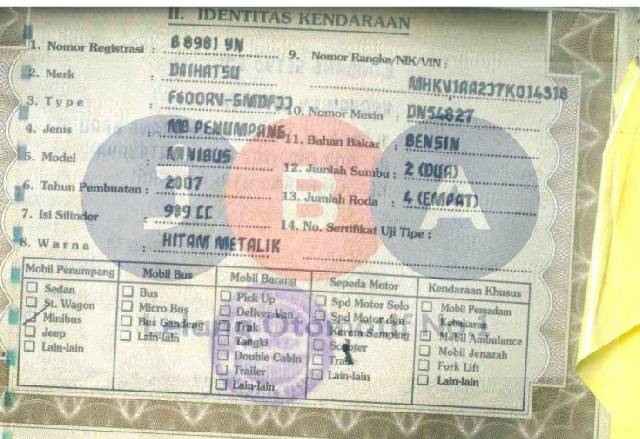 II. IDENTITAS KENDARAAN
1. Nomor Registrasi : B 8981 YN
2. Merk : DAIHATSU
3. Type : F600RV-GMDFJJ
4. Jenis : MB.PENUMPANG
5. Model : MINIBUS
6. Tahun Pembuatan : 2007
7. Isi Silinder : 989 CC
8. Warna : HITAM METALIK
9. Nomor Rangka/NIK/VIN :
MHKV1AA2J7K014318
10. Nomor Mesin : DN54827
11. Bahan Bakar : BENSIN
12. Jumlah Sumbu : 2 (DUA)
13. Jumlah Roda : 4 (EMPAT)
14. No. Sertifikat Uji Tipe :
EBA
Mobil Penumpang
Sedan
St. Wagon
Minibus
Jeep
Lain-lain
Mobil Bus
Bus
Micro Bus
Bus Gandeng
Lain-lain
Mobil Barang
Pick Up
Delivery Van
Truk
Tangki
Double Cabin
Trailer
Lain-lain
Sepeda Motor
Spd Motor Solo
Spd Motor dgn
Kereta Samping
Scooter
Lain-lain
Kendaraan Khusus
Mobil Pemadam
Kebakaran
Mobil Ambulance
Mobil Jenazah
Fork Lift
Lain-lain